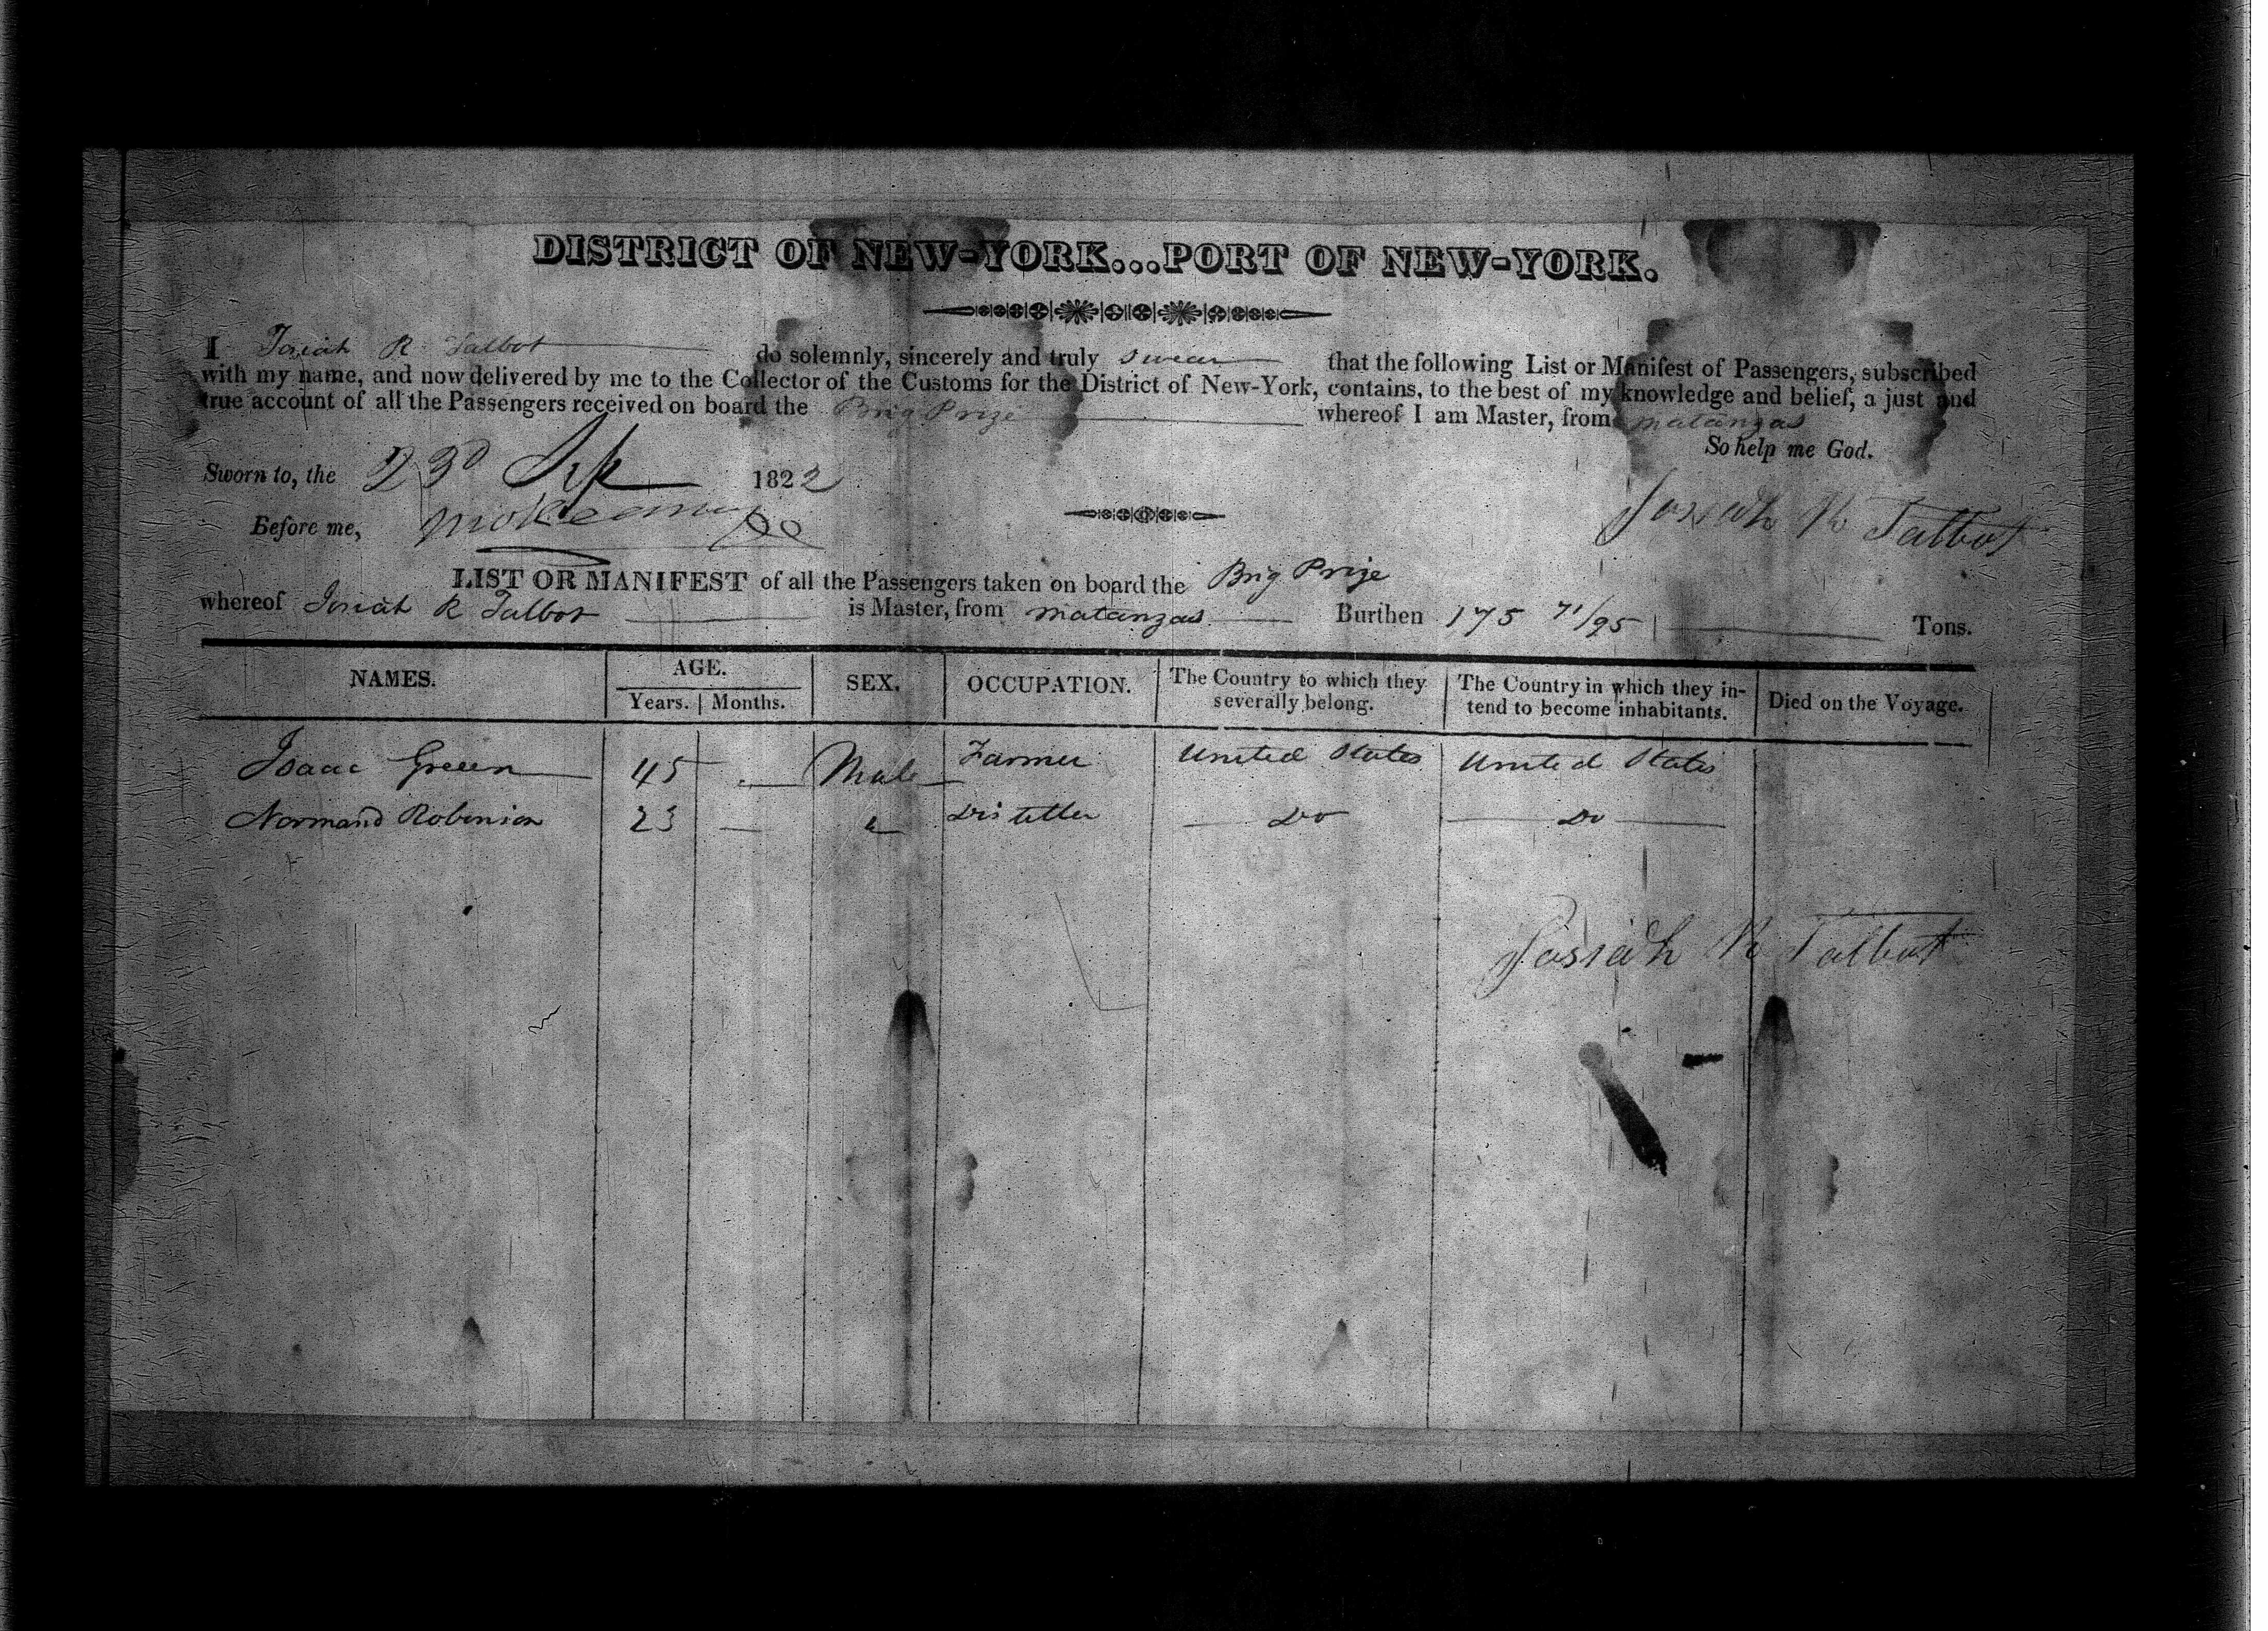 DISTRICT OF NEW-YORK...PORT OF NEW-YORK.
I Josiah R Talbot do solemnly, sincerely and truly swear that the following List or Manifest of Passengers, subscribed
with my name, and now delivered by me to the Collector of the Customs for the District of New-York, contains, to the best of my knowledge and belief, a just and
true account of all the Passengers received on board the Brig Prize whereof I am Master, from matanzas
So help me God.
Sworn to, the 23d Sep 1822
Josiah R Talbot
Before me,
LIST OR MANIFEST of all the Passengers taken on board the Brig Prize
whereof Josiah R Talbot is Master, from matanzas Burthen 175 71/95 Tons.
NAMES. AGE. SEX. OCCUPATION. The Country to which they severally belong. The Country in which they intend to become inhabitants. Died on the Voyage.
Years. Months.
Isaac Green 45 Male Farmer United States United States
Normand Robinson 23 " Distiller Do Do
Josiah R Talbot